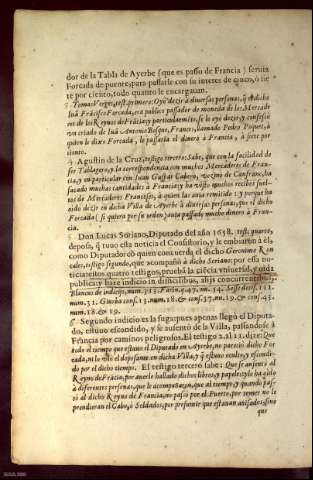 dor de la Tabla de Ayerbe (que es passo de Francia) servia
Forcada de puente, para passarle con su interes de cinco, ò sie
te por ciento, todo quanto le encargauan.
Tomas Verges, test. primero: Oyò dezir à diversas personas, q̃ el dicho
Iuã Frãcisco Forcada, era publico passador de moneda de los Mercade
res de los Reynos de Frãcia, y particularmẽte, se lo oyò dezir, y confessò
vn criado de Iuã Antonio Bosque, Frances, llamado Pedro Poques, à
quien le dixo Forcada, le passaria el dinero à Francia, à siete por
ciento.
4 Agustin de la Cruz, testigo tercero: Sabe, que con la facilidad de
ser Tablagero, y la correspondencia con muchos Mercaderes de Fran-
cia, y en particular con Iuan Gaspar Cabero, vezino de Canfranc, ha
sacado muchas cantidades à Francia, y ha visto muchos recibos suel-
tos de Mercaderes Franceses, à quien las avia remitido: y porque ha
oido dezir en dicha Villa de Ayerbe à diversas personas, que el dicho
Forcada (si quiera por su orden) avia passado mucho dinero à Fran-
cia.
5 Don Lucas Soriano, Diputado del año 1658. test. quarto,
deposa, q̃ tuuo esta noticia el Consistorio, y le embiaron à èl,
como Diputado: cõ quien concuerda el dicho Geronimo Ron
cales, testigo segundo, que acompañò à dicho Soriano: por essa no-
ticia estos quatro testigos, prueba la ciẽcia vniuersal, y vida
publica; y haze indicio in difficilibus, alijs concurrentibus,
Blancus de indicijs, num. 253. Farin. q. 47. nu. 14. Sesse decis. 111.
num. 31. Giurba cons. 13. num. 28. & cons. 37. nu. 19. & cons. 43.
num. 18. & 19.
6 Segundo indicio es la fuga; pues apenas llegò el Diputa-
do, estuuo escondido, y se ausentò de la Villa, passandose à
Francia por caminos peligrosos. El testigo 2. al 13. dize: Que
todo el tiempo que estuuo el Diputado en Ayerbe, no pareciò dicho For
cada, ni le viò el deposante en dicha Villa, y q̃ estuuo ausente, y escondi-
do por el dicho tiempo. El testigo tercero sabe: Que se ausentò al
Reyno de Frãcia, por averle hallado dichos libros, y papeles: y lo ha oido
à diferentes personas, que le acompañaron, que al tiempo, y quando pas-
sò al dicho Reyno de Francia, no passò por el Puerto, por temer no le
prendieran el Cabo, ò Soldados; por presumir que estauan avisados: sino
que